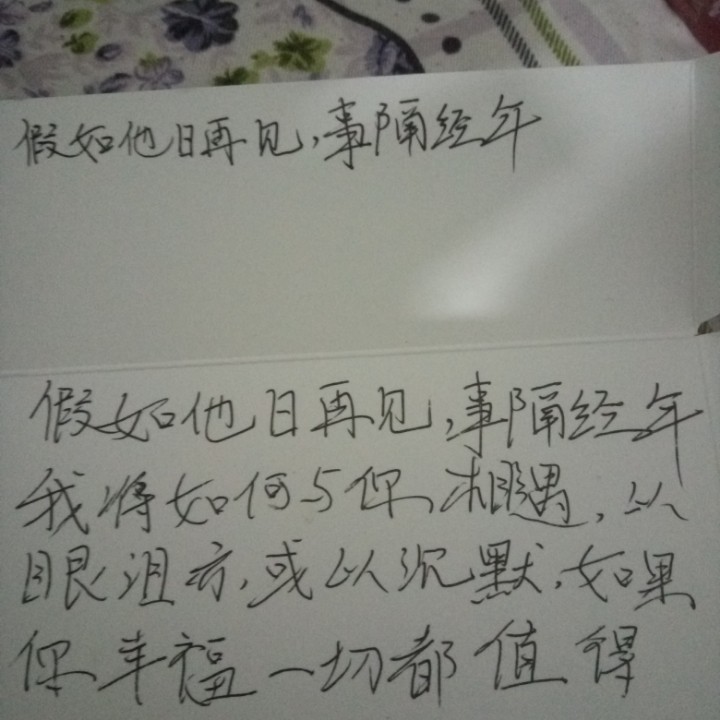 假如他日再见,事隔经年
假如他日再见,事隔经年
我将如何与你相遇,以
眼泪亦,或以沉默,如果
你幸福一切都值得